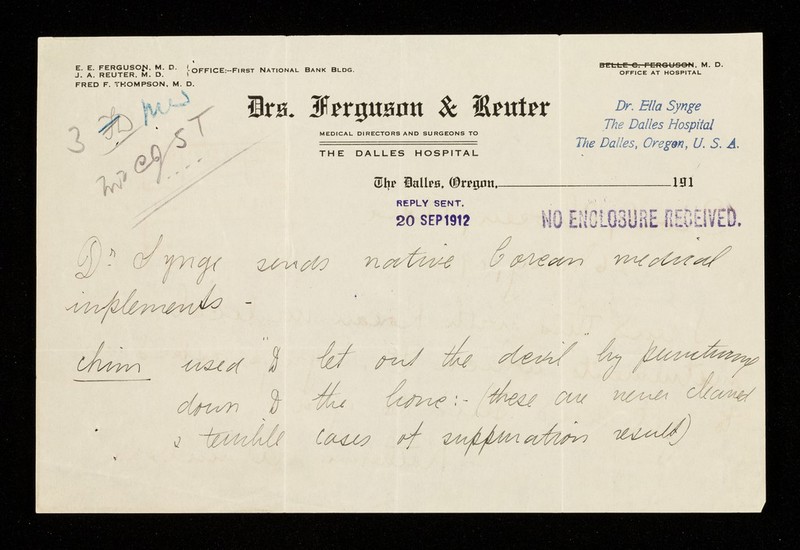 E. E. FERGUSON, M. D.
J. A. REUTER, M. D.
OFFICE:—FIRST NATIONAL BANK BLDG.
FRED F. THOMPSON, M. D.
BELLE C. FERGUSON, M. D.
OFFICE AT HOSPITAL
Drs. Ferguson & Reuter
MEDICAL DIRECTORS AND SURGEONS TO
THE DALLES HOSPITAL
Dr. Ella Synge
The Dalles Hospital
The Dalles, Oregon, U. S. A.
3
The Dalles, Oregon, 191
REPLY SENT.
20 SEP 1912
NO ENCLOSURE RECEIVED.
Dr Synge sends native Corean medical
implements -
chim used "to let out the devil" by puncturing
down to the bone:- (these are never cleaned
& terrible cases of suppuration result)